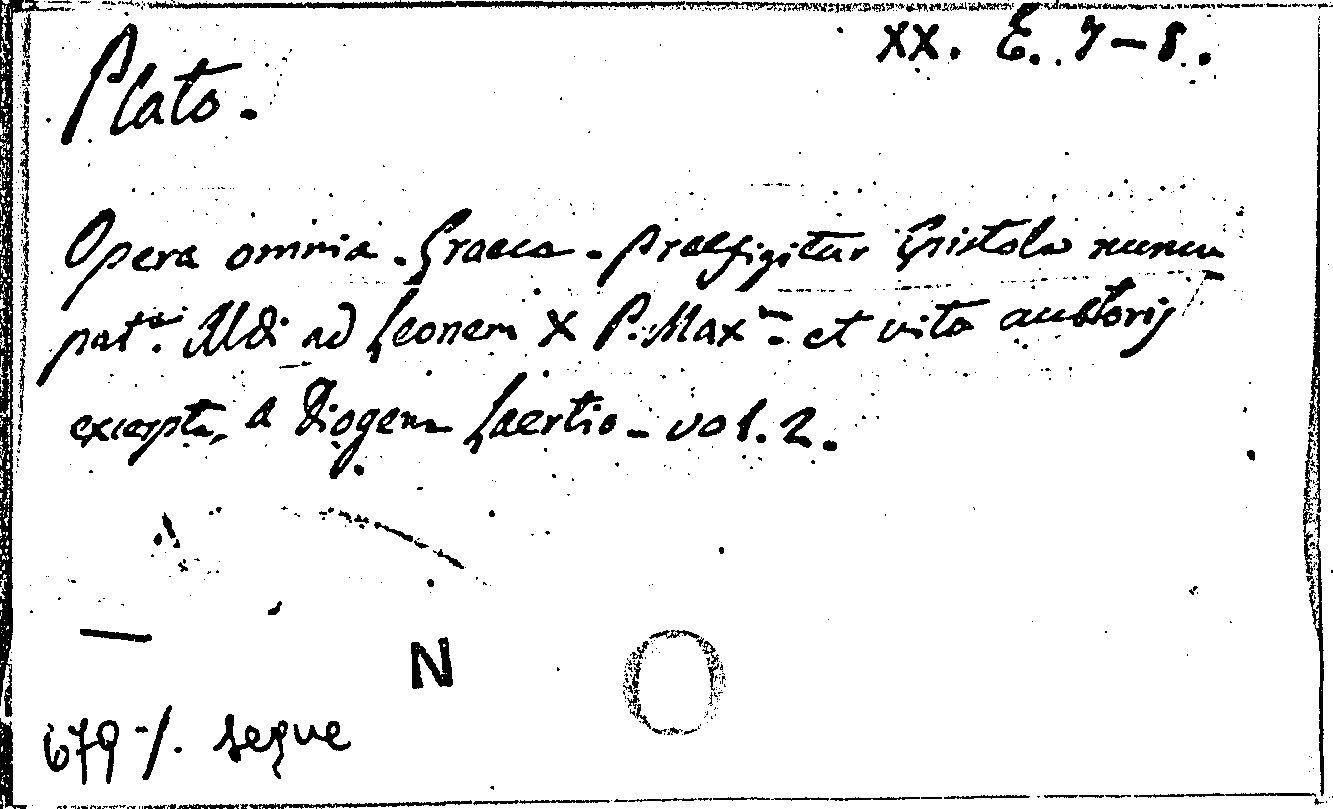 XX. E. 7-8.
Plato.
Opera omnia. Graeca. praefigitur Epistola nuncu
patª. Aldi ad Leonem X P. Max. et vita auctoris
excerpta, a Diogene Laertio - vol. 2.
N
679-/. segue